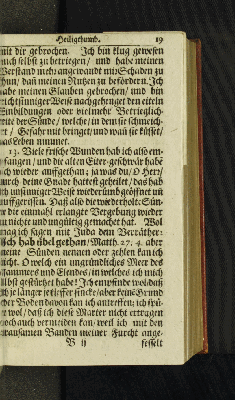 Heiligthumb. 19
mit dir gebrochen. Ich bin klug gewesen
mich selbst zu betriegen/ und habe meinen
Verstand mehr angewandt mir Schaden zu
thun/ daß meinen Nutzen zu befördern. Ich
habe meinen Glauben gebrochen/ und bin
nach unsinniger Weise nachgehenget den eitelen
Einbildungen oder vielmehr Betrieglich-
der Sünde/ welche/ in dem
Gefahr mit bringet/ und wañ sie küsset/
das Leben nimmet.
13. Viele frische Wunden hab ich also em-
pfangen/ und die alten Eiter-geschwär habe
ich wieder auffgethan; ja was du/ O Herr/
durch deine Gnade hattest geheilet/ das hab
ich unsinniger Weise wiederumb geöffnet un
auffgerissen. Daß also die wiederholte Sün-
de die einmahl erlangte Vergebung wieder
zu nichte und ungültig gemachet hat. Wol
mag ich sagen mit Juda dem Verräther:
Ich hab übel gethan/ Matth. 27, 4. aber
meine Sünden nennen oder zehlen kan ich
nicht. O welch ein ungründliches Meer des
Jammers und Elendes/ in welches ich mich
selbst gestürtzet habe! Ich empfinde wol/ daß
ich je länger je tieffer sincke/ aber keinē Grund
oder Boden davon kan ich antreffen; ich spü-
re wol/ daß ich diese Marter nicht ertragen
noch auch vermeiden kan/ weil ich mit den
grausamen Banden meiner Furcht ange-
B ij fesselt